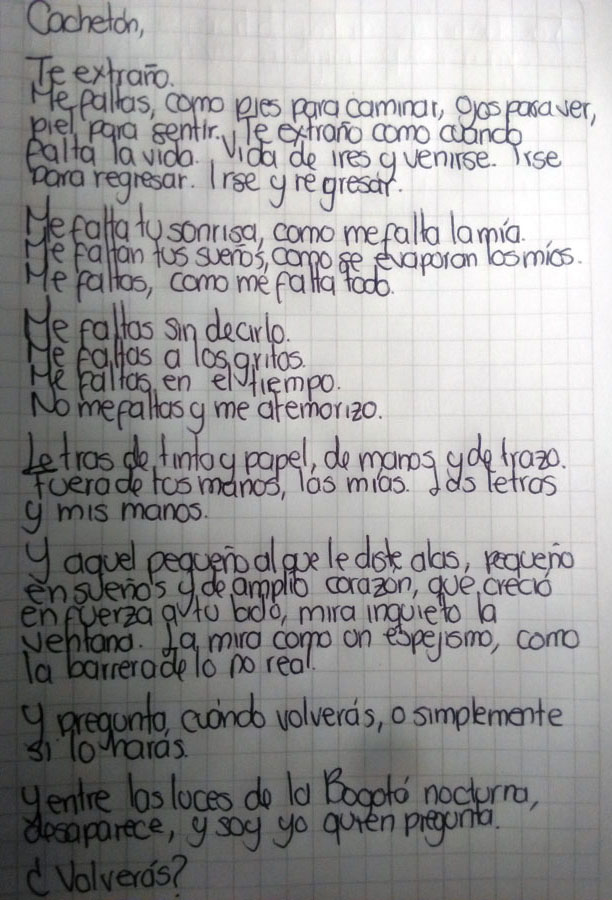 Cachetón,
Te extraño.
Me faltas, como pies para caminar, ojos para ver,
piel para sentir. Te extraño como cuando
falta la vida. Vida de ires y venirse. Irse
para regresar. Irse y regresar.
Me falta tu sonrisa, como me falta la mía.
Me faltan tus sueños, como se evaporan los míos.
Me faltas, como me falta todo.
Me faltas sin decirlo.
Me faltas a los gritos.
Me faltas en el tiempo.
No me faltas y me atemorizo.
Letras de tinta y papel, de manos y de trazo.
Fuera de tus manos, las mías. Las letras
y mis manos.
Y aquel pequeño al que le diste alas, pequeño
en sueños y de amplio corazón, que creció
en fuerza a tu lado, mira inquieto la
ventana. La mira como un espejismo, como
la barrera de lo no real.
Y pregunta, cuándo volverás, o simplemente
si lo harás.
Y entre las luces de la Bogotá nocturna,
desaparece, y soy yo quien pregunta.
¿Volverás?